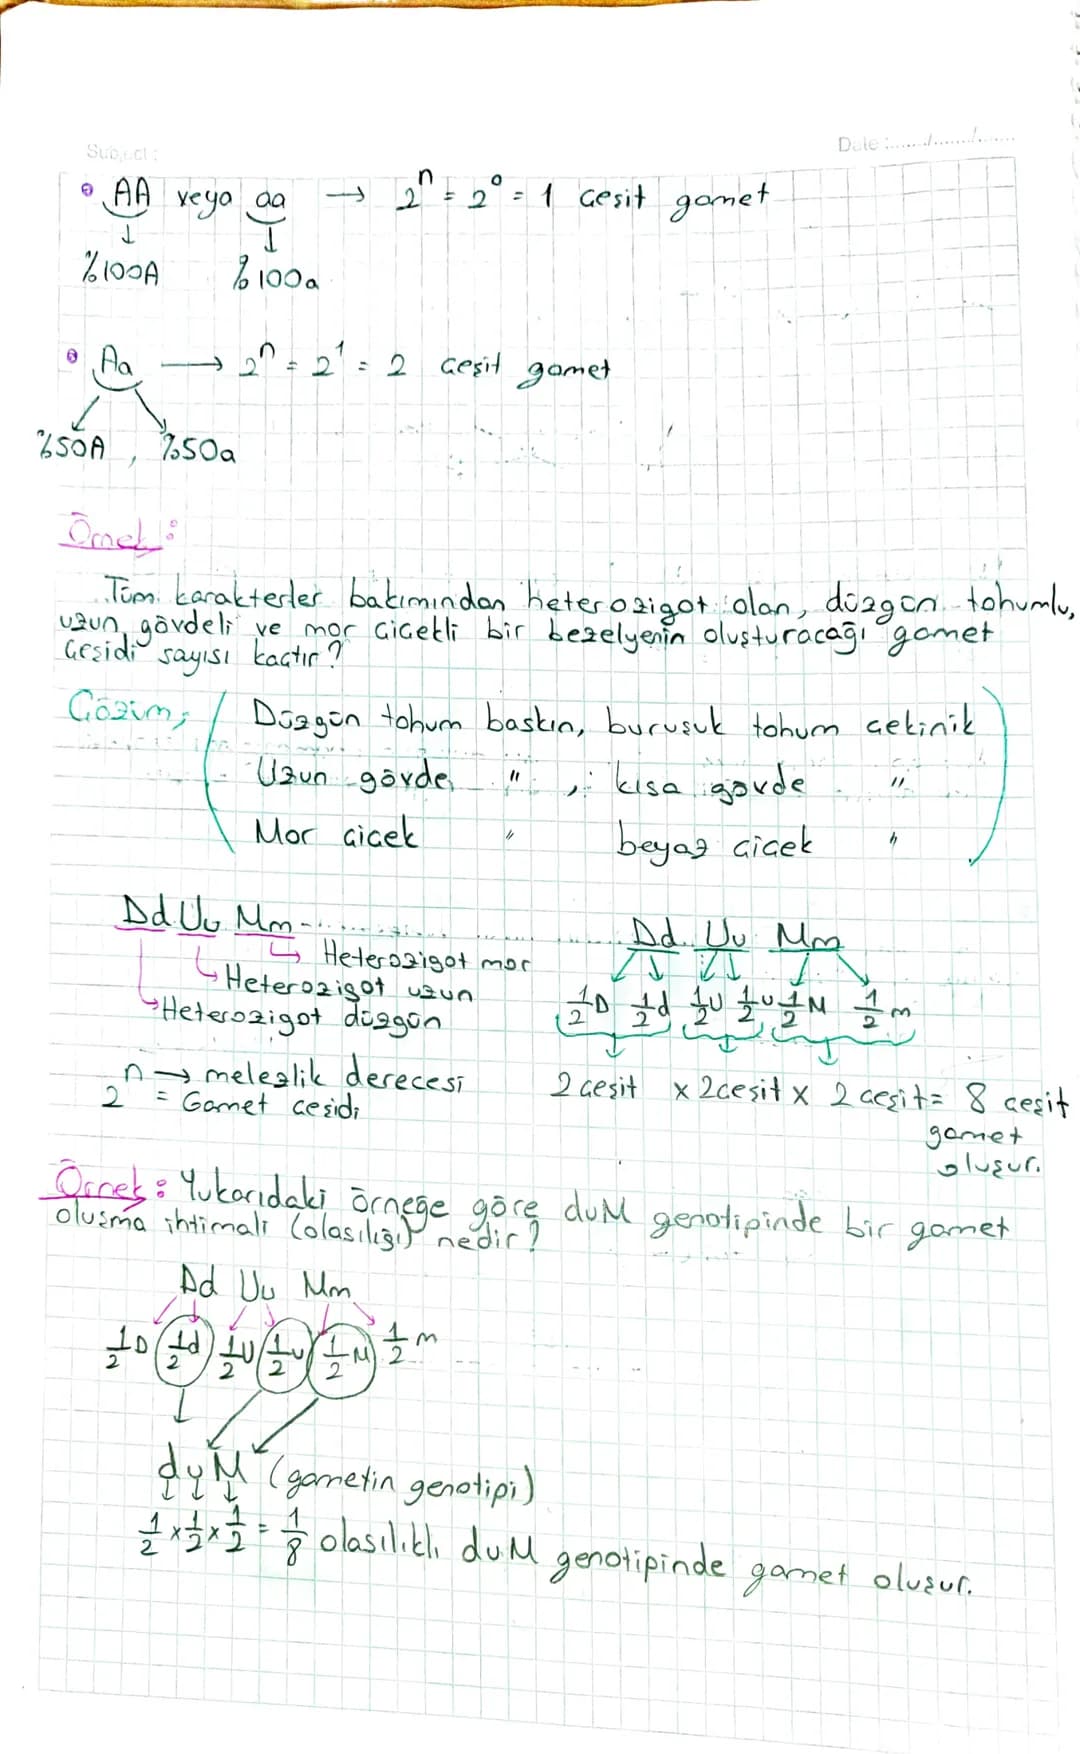 Subject :
Date :
AA veya aa → 2ⁿ = 2⁰ = 1 çeşit gamet
%100A %100a
Aa → 2ⁿ = 2¹ = 2 çeşit gamet
%50A , %50a
Örnek :
Tüm karakterler bakımından heterozigot olan, düzgün tohumlu,
uzun gövdeli ve mor çiçekli bir bezelyenin oluşturacağı gamet
çeşidi sayısı kaçtır?
Çözüm; Düzgün tohum baskın, buruşuk tohum çekinik
Uzun gövde " , kısa gövde "
Mor çiçek " beyaz çiçek "
Dd Uu Mm
↳ Heterozigot mor
↳ Heterozigot uzun
↳ Heterozigot düzgün
2ⁿ → melezlik derecesi
= Gamet çeşidi
Dd Uu Mm
1/2 D 1/2 d 1/2 U 1/2 u 1/2 M 1/2 m
2 çeşit x 2 çeşit x 2 çeşit = 8 çeşit
gamet
oluşur.
Örnek : Yukarıdaki örneğe göre duM genotipinde bir gamet
oluşma ihtimali (olasılığı) nedir?
Dd Uu Mm
1/2 D 1/2 d 1/2 U 1/2 u 1/2 M 1/2 m
duM (gametin genotipi)
1/2 x 1/2 x 1/2 = 1/8 olasılıklı duM genotipinde gamet oluşur.